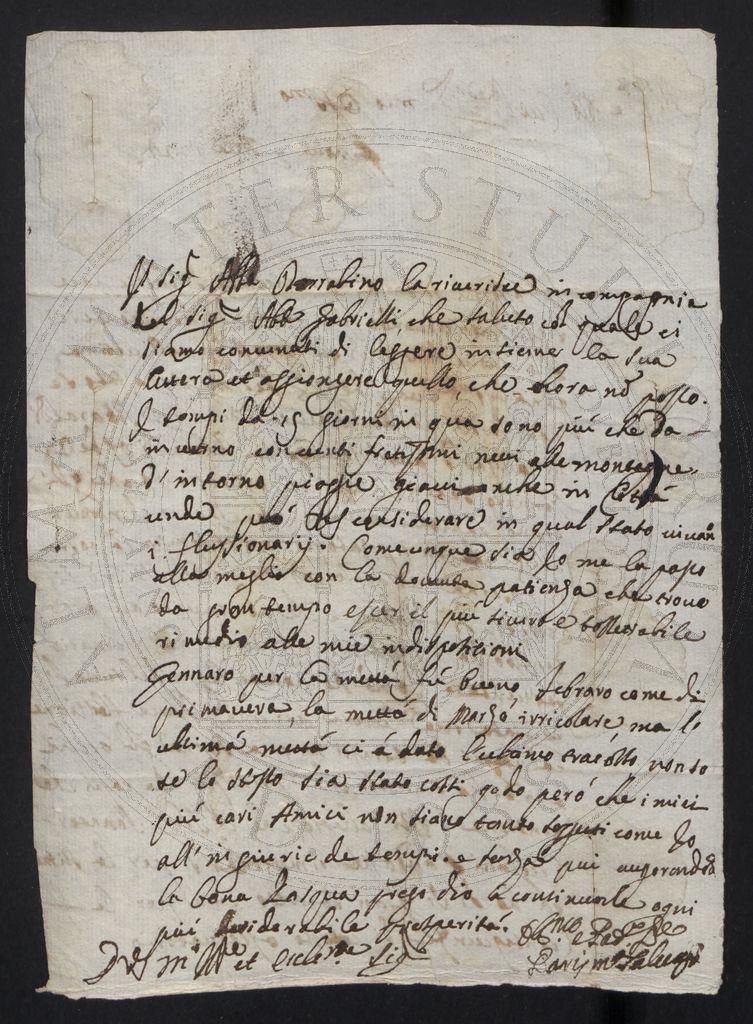 Il Sig.r Abb. Borrabino la riverisce in compagnia
del Sig.r Abb. Gabrielli che saluto col quale ci
siamo convenuti di leggere insieme la sua
lettera et aggiongere quello, che hora nō posso.
I tempi da 15 giorni in qua sono piu che da
inverno con venti freddissimi nevi alle montagne
d'intorno pioggie giacci anche in Città
unde può considerare in qual stato vivan
i flussionarij. Comeunque sia Io me la passo
alla meglio con la dovuta patienza che trovo
da gran tempo esser il più sicuro e tollerabile
rimedio alle mie indispositioni
Gennaro per la mettá fú buono Febraro come di
primavera, la mettá di Marzo irricolare, ma l'
ultimá mettá ci á dato l'ultimo tracollo non so
se lo stesso sia stato costi godo peró che i miei
piú cari Amici non siano tanto soggetti come Io
all'ingiurie de tempi. e senza piu augorandoli
la bona Pasqua prego dio a continuarle ogni
piú desiderabile prosperitá.
D V S m.to Ill.e et Eccl.ma Sig